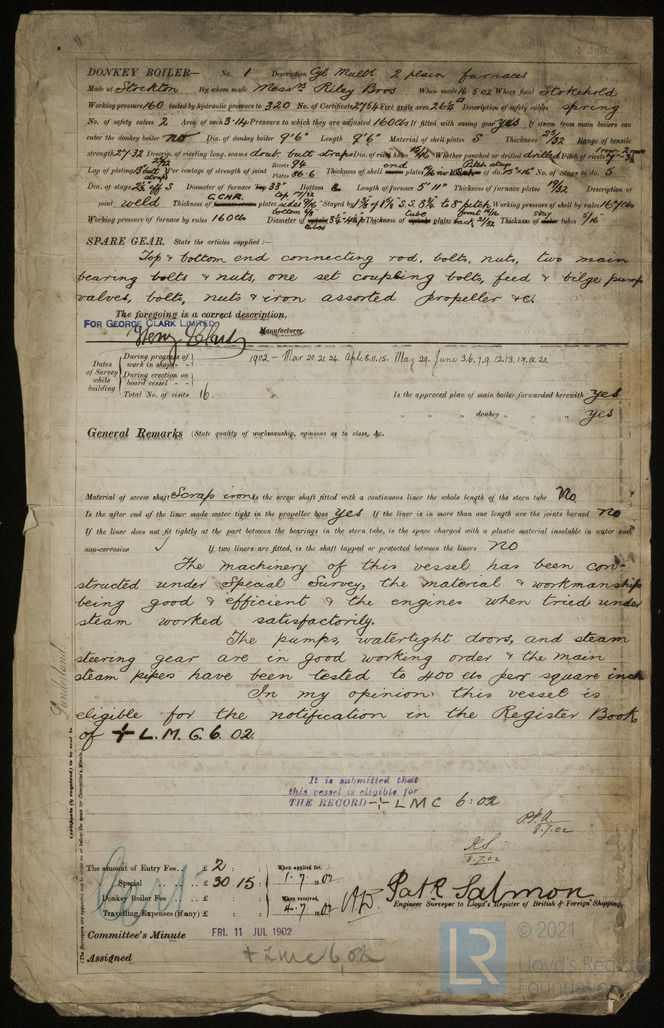 DONKEY BOILER— No. 1 Description Cyl Mult. 2 plain furnaces
Made at Stockton By whom made Messrs Riley Bros When made 16.5.02 Where fixed Stokehold
Working pressure 160 tested by hydraulic pressure to 320 No. of Certificate 2754 Fire grate area 26½ Description of safety valves spring
No. of safety valves 2 Area of each 3.14 Pressure to which they are adjusted 160 lbs If fitted with easing gear yes If steam from main boilers can
enter the donkey boiler no Dia. of donkey boiler 9'6" Length 9'6" Material of shell plates S Thickness 25/32 Range of tensile
strength 27-32 Descrip. of riveting long. seams doub. butt straps Dia. of rivet holes Whether punched or drilled drilled Pitch of rivets
Lap of plating butt straps Per centage of strength of joint Rivets 94 Plates 86.6 Thickness of shell plates of do. No. of Stays to do. 5
Dia. of stays S Diameter of furnace 33" Bottom Length of furnace 5'11" Thickness of furnace plates Description of
joint weld Thickness of plates Stayed by Working pressure of shell by rules 167 lbs
Working pressure of furnace by rules 160 lbs Diameter of Thickness of tube plates Thickness of stay tubes 5/16"
SPARE GEAR. State the articles supplied:—
Top & bottom end connecting rod, bolts, nuts, two main
bearing bolts & nuts, one set coupling bolts, feed & bilge pump
valves, bolts, nuts & iron assorted propeller &c.
The foregoing is a correct description,
FOR GEORGE CLARK LIMITED
Manufacturer
Dates of Survey while building
During progress of work in shops - -
1902 - Mar 20.21.24. Apl. 8.11.15. May 29. June 3.6.7.9.12.13.17.18.20.
During erection on board vessel - -
Total No. of visits 16
Is the approved plan of main boiler forwarded herewith yes
" " " donkey " " " yes
General Remarks (State quality of workmanship, opinions as to class, &c.
Material of screw shaft Scrap iron Is the screw shaft fitted with a continuous liner the whole length of the stern tube No
Is the after end of the liner made water tight in the propeller boss yes If the liner is in more than one length are the joints burned no
If the liner does not fit tightly at the part between the bearings in the stern tube, is the space charged with a plastic material insoluble in water and
non-corrosive If two liners are fitted, is the shaft lapped or protected between the liners no
The machinery of this vessel has been con-
structed under Special Survey, the material & workmanship
being good & efficient & the engines when tried under
steam worked satisfactorily.
The pumps, watertight doors, and steam
steering gear are in good working order & the main
steam pipes have been tested to 400 lbs per square inch
In my opinion this vessel is
eligible for the notification in the Register Book
of + L.M.C. 6.02.
Sunderland
It is submitted that
this vessel is eligible for
THE RECORD + LMC 6:02
8.7.02
8.7.02
The amount of Entry Fee.. £ 2 : :
When applied for,
Special .. .. £ 30 15 :
1.7.1902
Donkey Boiler Fee .. .. £ : :
When received,
Travelling Expenses (if any) £ : :
4.7.1902
Patk Salmon
Engineer Surveyor to Lloyd's Register of British & Foreign Shipping.
Committee's Minute FRI. 11 JUL 1902
Assigned + LMC 6,02
© 2021
LR
Lloyd's Register
Foundation